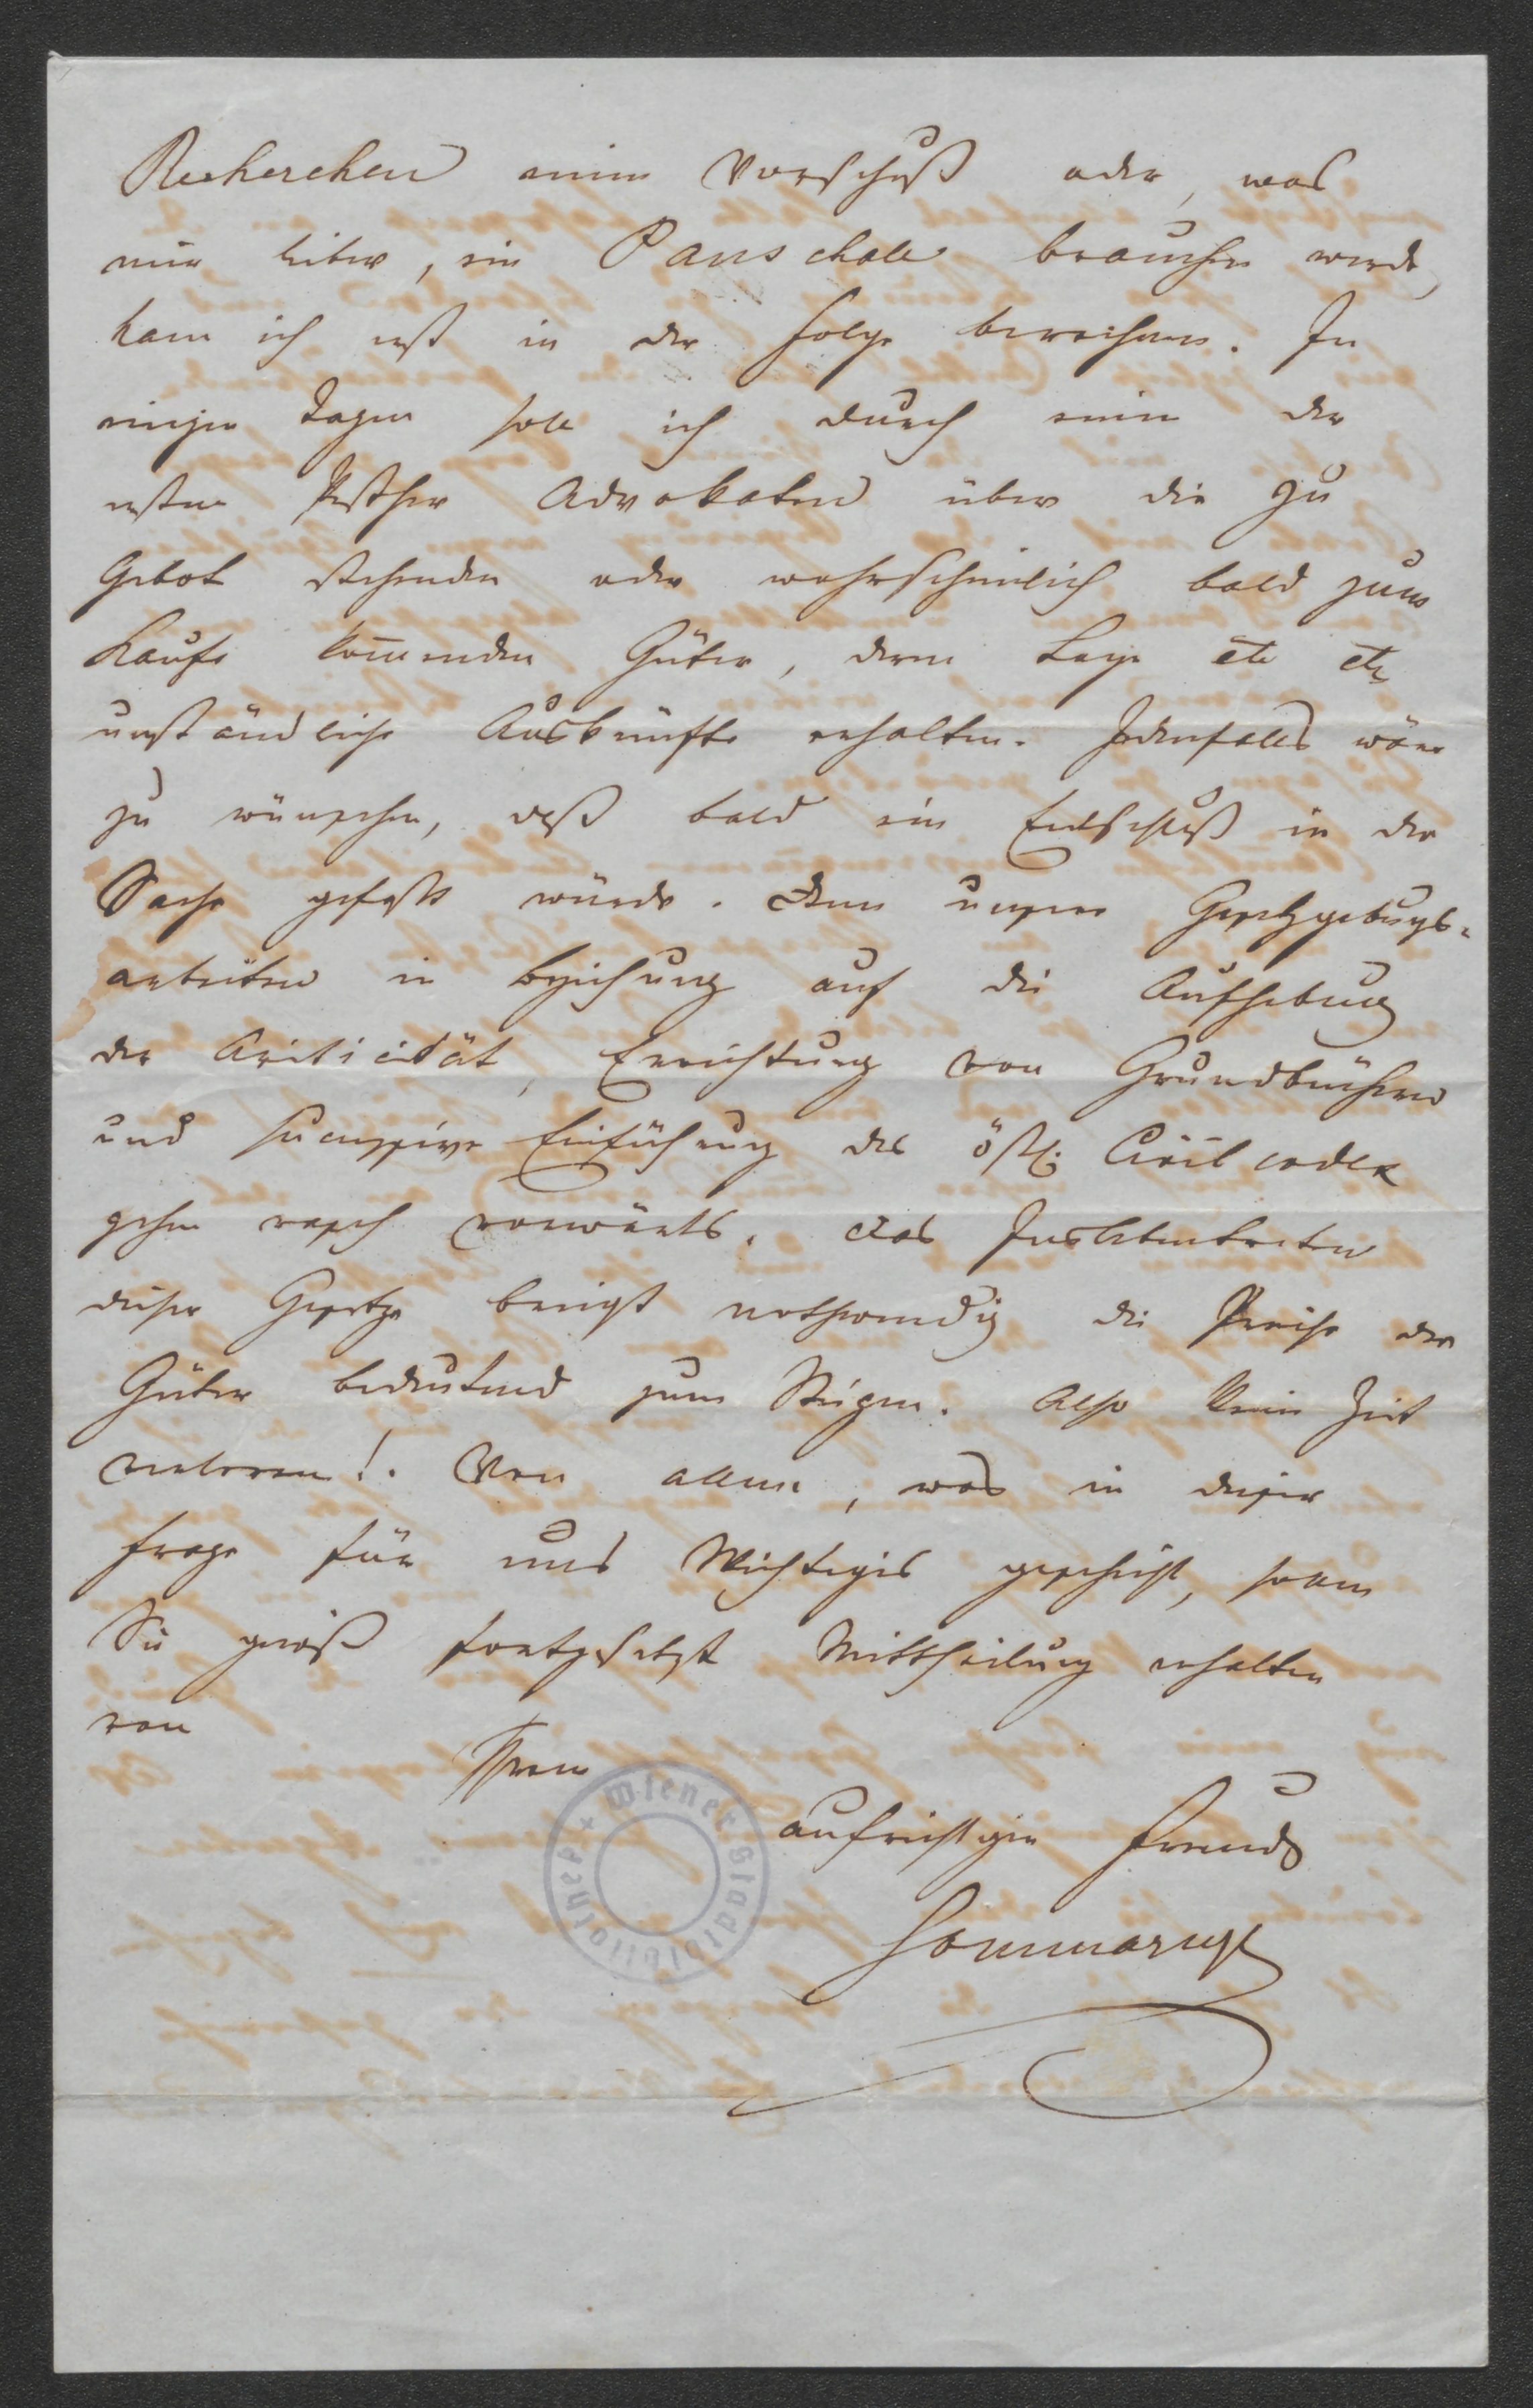 Recherchen einen Vorschuß oder, was
mir lieber, ein Pauschale brauchen werde,
kann ich erst in der Folge berechnen. In
einigen Tagen soll ich durch einen der
ersten Pesther Advokaten über die zu
Gebot stehenden oder wahrscheinlich bald zum
Kaufe kom̄enden Güter, deren Lage etc etc
umständliche Auskünfte erhalten. Jedenfalls wäre
zu wünschen, daß bald ein Entschluß in der
Sache gefaßt würde. Denn unsere Gesetzgebungs-
arbeiten in Beziehung auf die Aufhebung
der Aviticität, Errichtung von Grundbüchern
und successive Einführung des östr. Civilcodex
gehen rasch vorwärts. Das Inslebentreten
dieser Gesetze bringt nothwendig die Preise der
Güter bedeutend zum Steigen. Also keine Zeit
verloren!. Von allem, was in dieser
Frage für uns Wichtiges geschieht, sollen
Sie gewiß fortgesetzt Mittheilung erhalten
von
Ihrem
aufrichtigen Freunde
Sommaruga
Wiener Stadtbibliothek